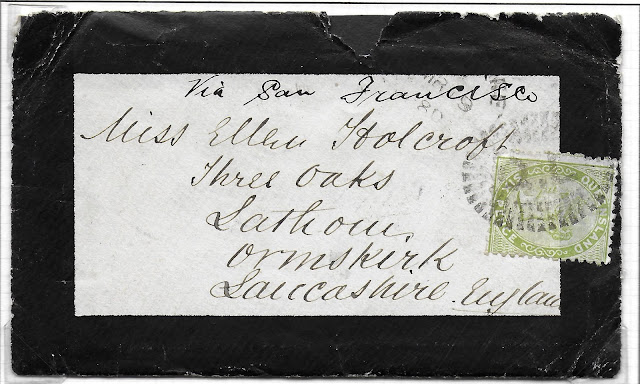 Via San Francisco
Miss Ellen Holcroft
Three Oaks
Lathom
Ormskirk
Lancashire. England